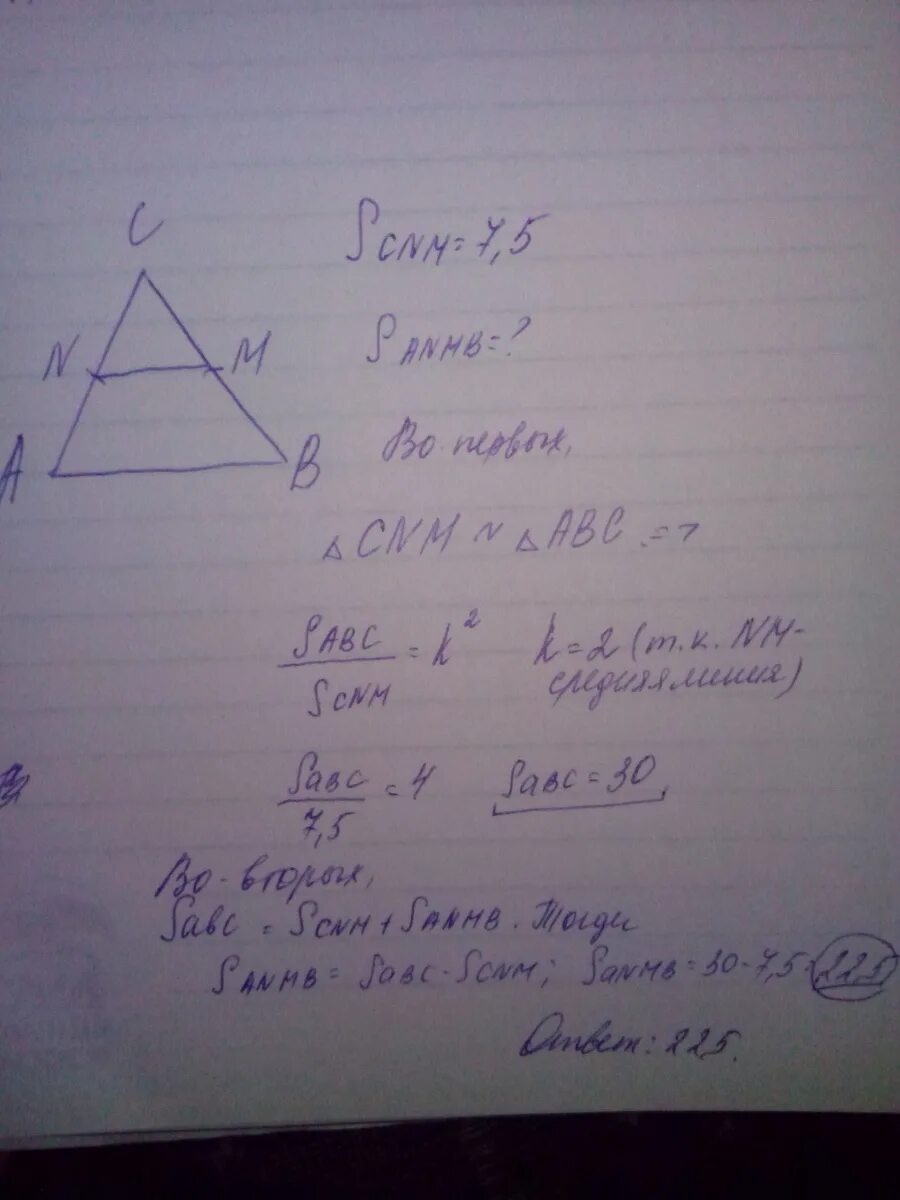 C
S CNM = 7,5
N M
S ANMB = ?
A B
Во-первых,
△ CNM ~ △ ABC =>
S ABC / S CNM = k² k = 2 (т.к. NM-
средняя линия)
S ABC / 7,5 = 4 S ABC = 30
Во-вторых,
S ABC = S CNM + S ANMB. Тогда
S ANMB = S ABC - S CNM; S ANMB = 30 - 7,5 = 22,5
Ответ: 22,5.